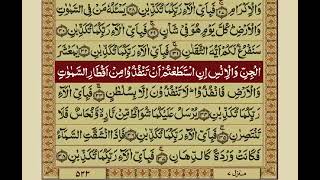 وَالْاِكْرَامِ ﴿۲۷﴾ فَبِاَيِّ اٰلَآءِ رَبِّكُمَا تُكَذِّبٰنِ ﴿۲۸﴾ يَسْـَٔلُهٗ مَنْ فِي السَّمٰوٰتِ
وَالْاَرْضِ كُلَّ يَوْمٍ هُوَ فِيْ شَاْنٍ ﴿۲۹﴾ فَبِاَيِّ اٰلَآءِ رَبِّكُمَا تُكَذِّبٰنِ ﴿۳۰﴾
سَنَفْرُغُ لَكُمْ اَيُّهَ الثَّقَلٰنِ ﴿۳۱﴾ فَبِاَيِّ اٰلَآءِ رَبِّكُمَا تُكَذِّبٰنِ ﴿۳۲﴾ يٰمَعْشَرَ
الْجِنِّ وَالْاِنْسِ اِنِ اسْتَطَعْتُمْ اَنْ تَنْفُذُوْا مِنْ اَقْطَارِ السَّمٰوٰتِ
وَالْاَرْضِ فَانْفُذُوْا ؕ لَا تَنْفُذُوْنَ اِلَّا بِسُلْطٰنٍ ﴿۳۳﴾ فَبِاَيِّ اٰلَآءِ
رَبِّكُمَا تُكَذِّبٰنِ ﴿۳۴﴾ يُرْسَلُ عَلَيْكُمَا شُوَاظٌ مِّنْ نَّارٍ ۙ وَّنُحَاسٌ فَلَا
تَنْتَصِرٰنِ ﴿۳۵﴾ فَبِاَيِّ اٰلَآءِ رَبِّكُمَا تُكَذِّبٰنِ ﴿۳۶﴾ فَاِذَا انْشَقَّتِ السَّمَآءُ
فَكَانَتْ وَرْدَةً كَالدِّهَانِ ﴿۳۷﴾ فَبِاَيِّ اٰلَآءِ رَبِّكُمَا تُكَذِّبٰنِ ﴿۳۸﴾
منزل ۷
۵۲۳